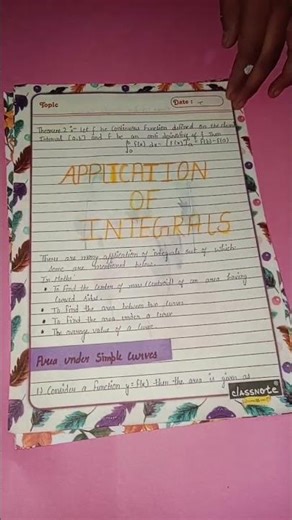 Topic
Date :
Theorem 2 :- Let f be continuous function defined on the closed
interval [a,b] and F be an anti derivative of f. Then
∫ f(x) dx = [F(x)] = F(b) - F(a)
APPLICATION
OF
INTEGRALS
There are many application of integrals out of which
some are mentioned below
In Maths:
• To find the center of mass (centroid) of an area having
curved sides.
• To find the area between two curves
• To find the area under a curve
• The average value of a curve
Area under Simple Curves
1) Consider a function y=f(x) then the area is given as
classnote